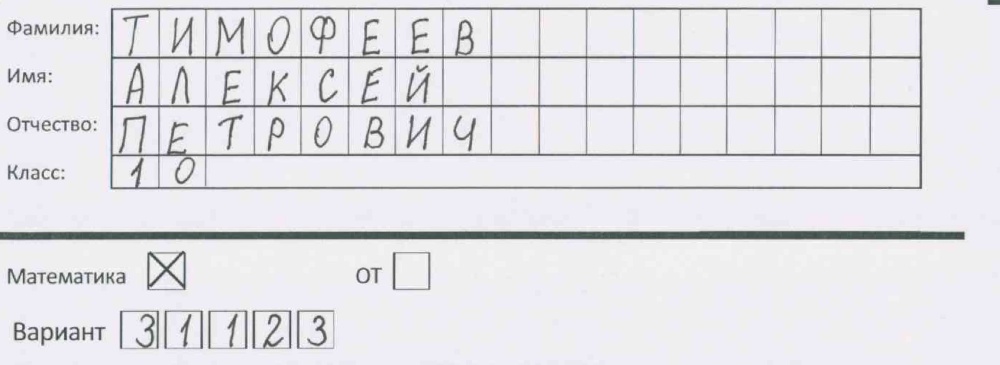 Фамилия: ТИМОФЕЕВ
Имя: АЛЕКСЕЙ
Отчество: ПЕТРОВИЧ
Класс: 10
Математика ☒ ОТ ☐
Вариант 31123